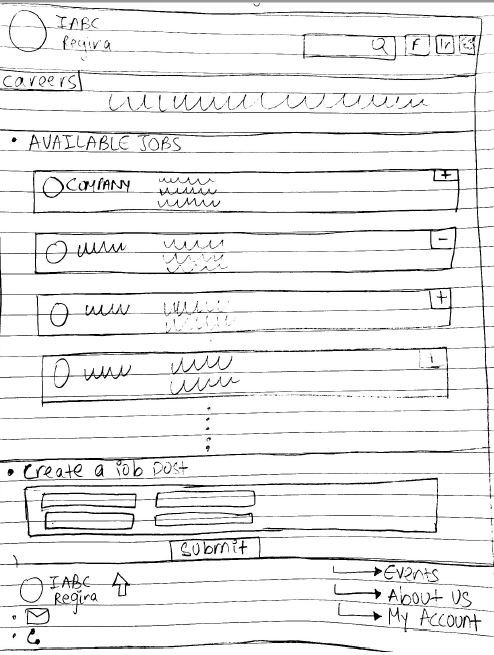 IABC
Regira
F In
careers
AVAILABLE JOBS
COMPANY
Create a job post
Submit
IABC
Regira
Events
About Us
My Account